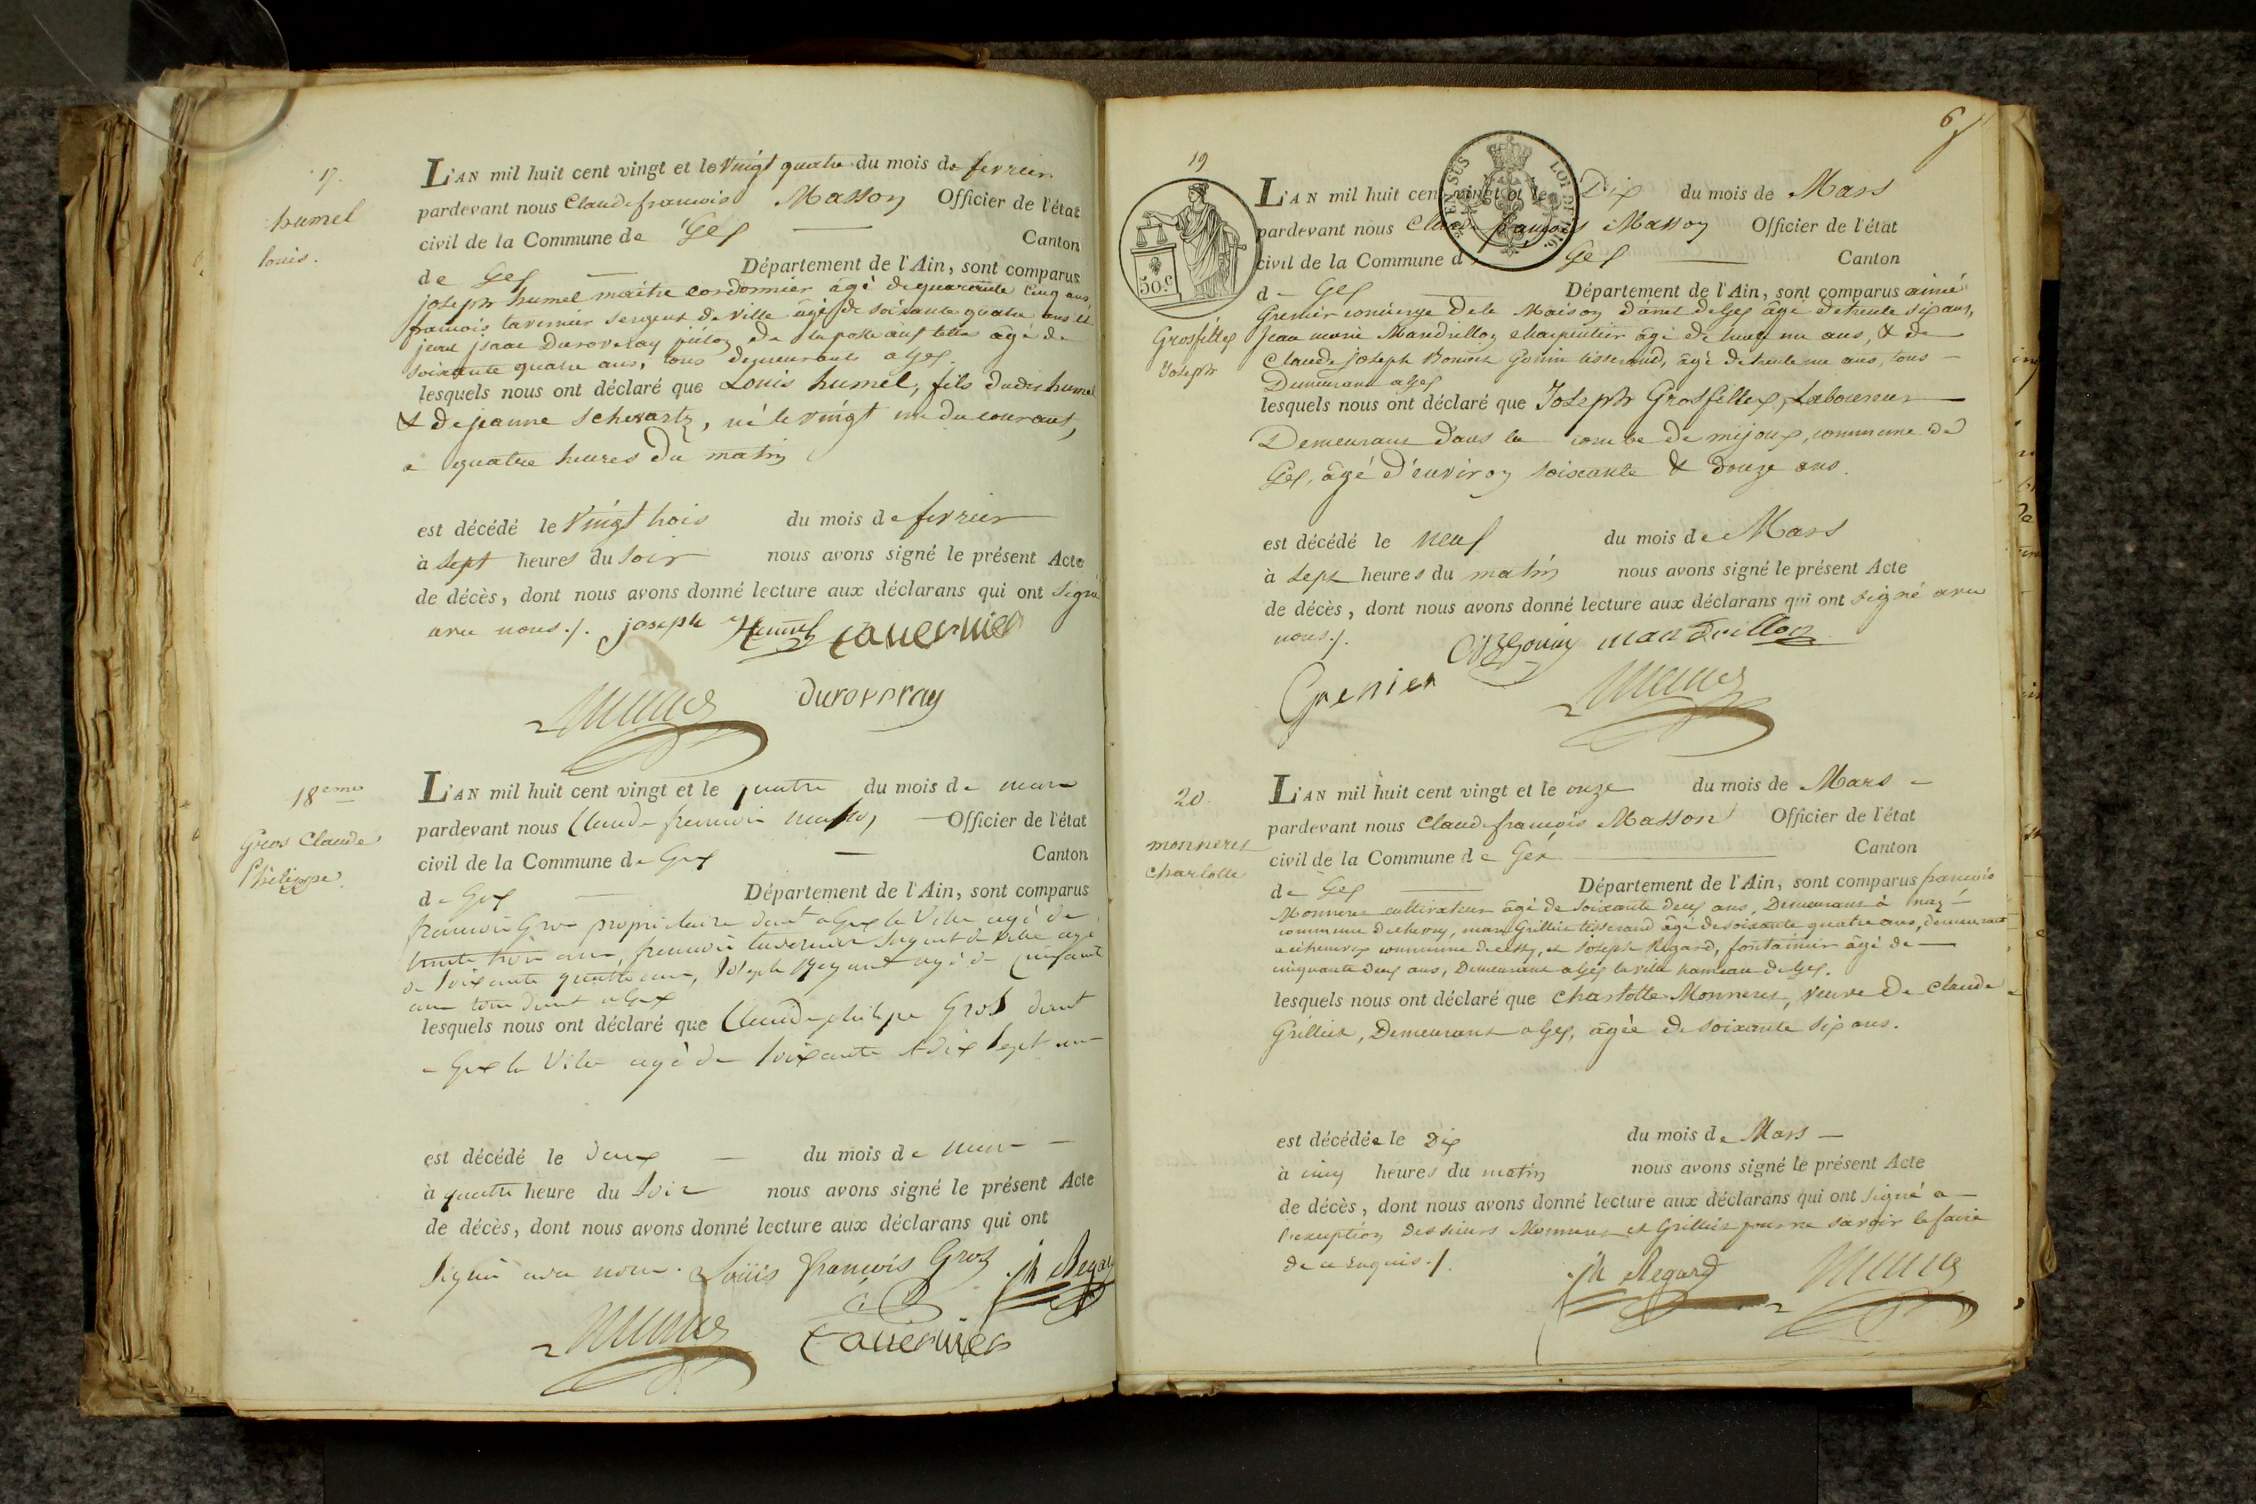 17.
humel
louis.
L'AN mil huit cent vingt et le vingt quatre du mois de fevrier
pardevant nous Claude françois Masson Officier de l'état
civil de la Commune de Gex Canton
de Gex Département de l'Ain, sont comparus
joseph humel maître cordonnier âgé de quarante cinq ans,
françois tavernier sergent de ville âgé de soixante quatre ans et
jean isaac Duroveray piéton de la poste aux lettres âgé de
soixante quatre ans, tous demeurants a Gex.
lesquels nous ont déclaré que Louis humel, fils dudit humel
& de jeanne Schwartz, né le vingt un du courant,
a quatre heures du matin
est décédé le vingt trois du mois de fevrier
à sept heures du soir nous avons signé le présent Acte
de décès, dont nous avons donné lecture aux déclarans qui ont signé
avec nous ./. joseph Humel tavernier
Masson duroveray
18eme
Gros Claude
Philippe
L'AN mil huit cent vingt et le quatre du mois de mars
pardevant nous Claude francois masson Officier de l'état
civil de la Commune de Gex Canton
de Gex Département de l'Ain, sont comparus
francois Gros propriétaire demt a Gex la Ville agé de
trente trois ans, francois tavernier sergent de ville agé
de soixante quatre ans, Joseph Regard agé de cinquante
ans tous demt a Gex
lesquels nous ont déclaré que Claude philipe Gros demt
a Gex la Ville agé de soixante et dix sept ans
est décédé le deux du mois de mars
à quatre heure du soir nous avons signé le présent Acte
de décès, dont nous avons donné lecture aux déclarans qui ont
signé avec nous. Loüis françois Gros jh Regard
Masson tavernier
6
19
Grosfilley
Joseph
50.c
EN SUS
LOI DE 1816.
L'AN mil huit cent vingt et le Dix du mois de Mars
pardevant nous Claude françois Masson Officier de l'état
civil de la Commune d Gex Canton
de Gex Département de l'Ain, sont comparus aimé
Grenier concierge de la Maison d'arret de Gex âgé de trente six ans,
Jean marie Mandrillon charpentier âgé de ans, & de
Claude joseph Gonin tisserand, âgé de trente un ans, tous
Demeurant a Gex
lesquels nous ont déclaré que Joseph Grosfilley, Laboureur
Demeurant dans la combe de mijoux, commune de
Gex, âgé d'environ soixante & douze ans.
est décédé le neuf du mois de Mars
à sept heures du matin nous avons signé le présent Acte
de décès, dont nous avons donné lecture aux déclarans qui ont signé avec
nous ./. Gonin mandrillon
Grenier Masson
20.
monneret
charlotte
L'AN mil huit cent vingt et le onze du mois de Mars
pardevant nous Claude françois Masson Officier de l'état
civil de la Commune de Gex Canton
de Gex Département de l'Ain, sont comparus françois
Monneret cultivateur âgé de soixante deux ans, Demeurant à naz
commune d'echevey, marc Grilliet tisserand âgé de soixante quatre ans, demeurant
a echenevex commune de cessy, et Joseph Regard, fontainier âgé de
cinquante deux ans, Demeurant a Gex la ville hameau de Gex.
lesquels nous ont déclaré que Charlotte Monneret, veuve de Claude
Grilliet, Demeurant a Gex, âgée de soixante six ans.
est décédée le dix du mois de Mars
à cinq heures du matin nous avons signé le présent Acte
de décès, dont nous avons donné lecture aux déclarans qui ont signé a
l'exception des sieurs Monneret et Grilliet pour ne savoir le faire
de ce enquis ./. jh Regard Masson